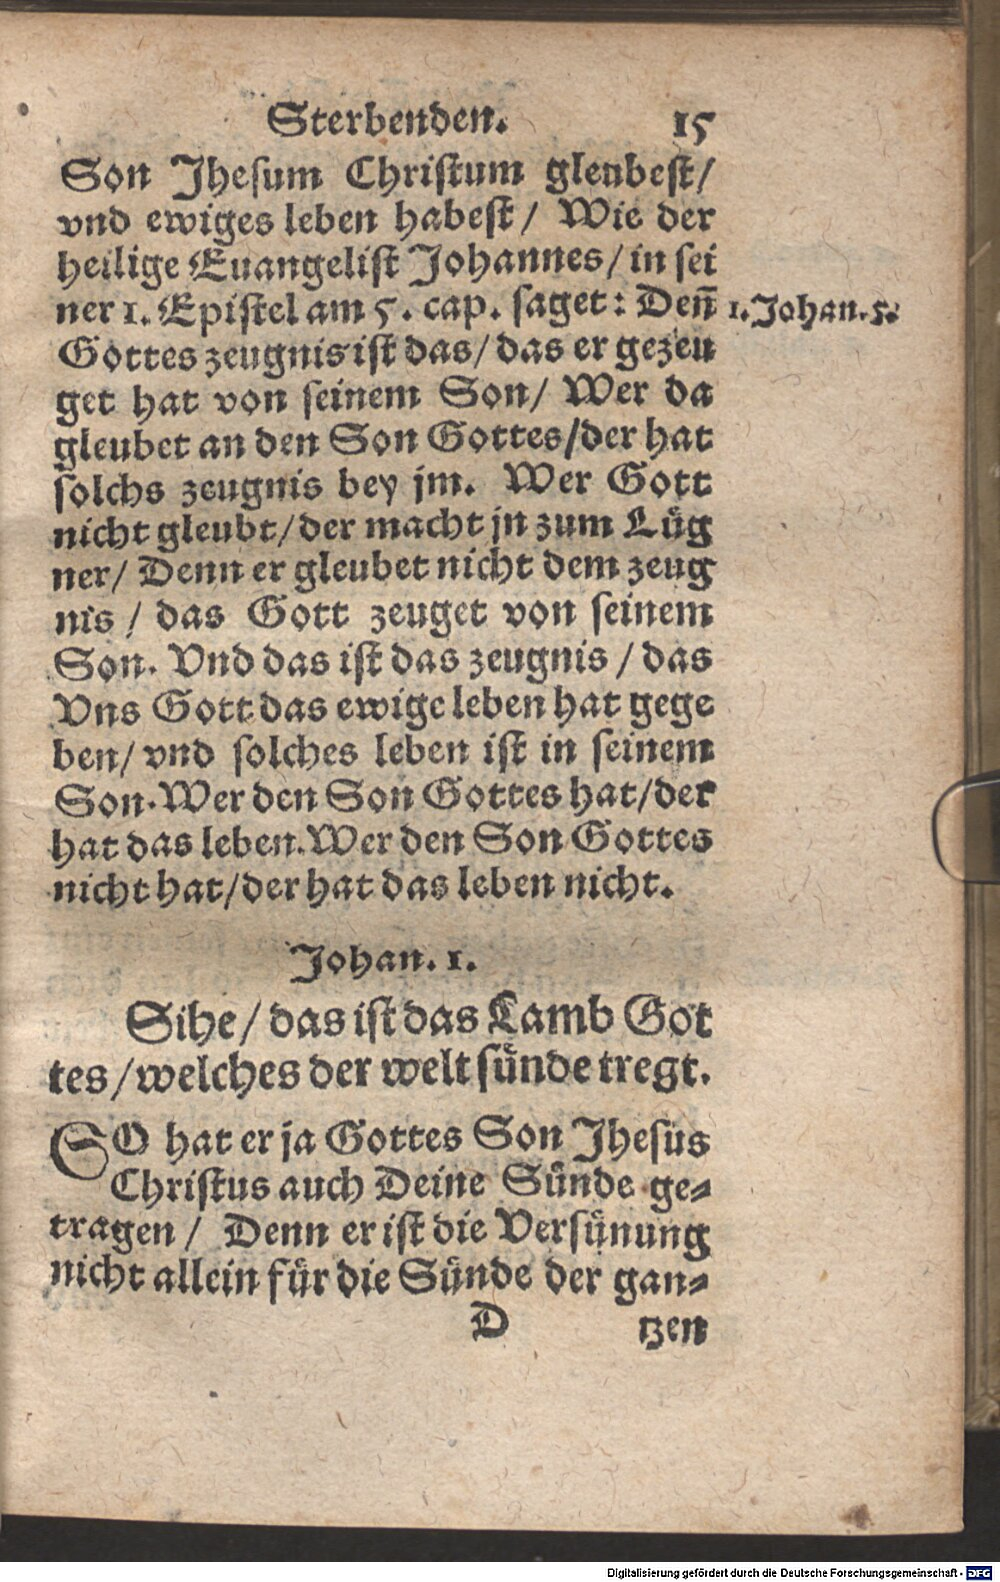 Sterbenden. 15
Son Jhesum Christum gleubest/
vnd ewiges leben habest/ Wie der
heilige Euangelist Johannes/ in sei
ner 1. Epistel am 5. cap. saget: Den̄ 1. Johan. 5.
Gottes zeugnis ist das/ das er gezeu
get hat von seinem Son/ Wer da
gleubet an den Son Gottes/ der hat
solchs zeugnis bey jm. Wer Gott
nicht gleubt/ der macht jn zum Lüg
ner/ Denn er gleubet nicht dem zeug
nis/ das Gott zeuget von seinem
Son. Vnd das ist das zeugnis/ das
Vns Gott das ewige leben hat gege
ben/ vnd solches leben ist in seinem
Son. Wer den Son Gottes hat/ der
hat das leben. Wer den Son Gottes
nicht hat/ der hat das leben nicht.
Johan. 1.
Sihe/ das ist das Lamb Got
tes/ welches der welt sünde tregt.
SO hat er ja Gottes Son Jhesus
Christus auch Deine Sünde ge-
tragen/ Denn er ist die Versünung
nicht allein für die Sünde der gan-
D tzen
Digitalisierung gefördert durch die Deutsche Forschungsgemeinschaft - DFG